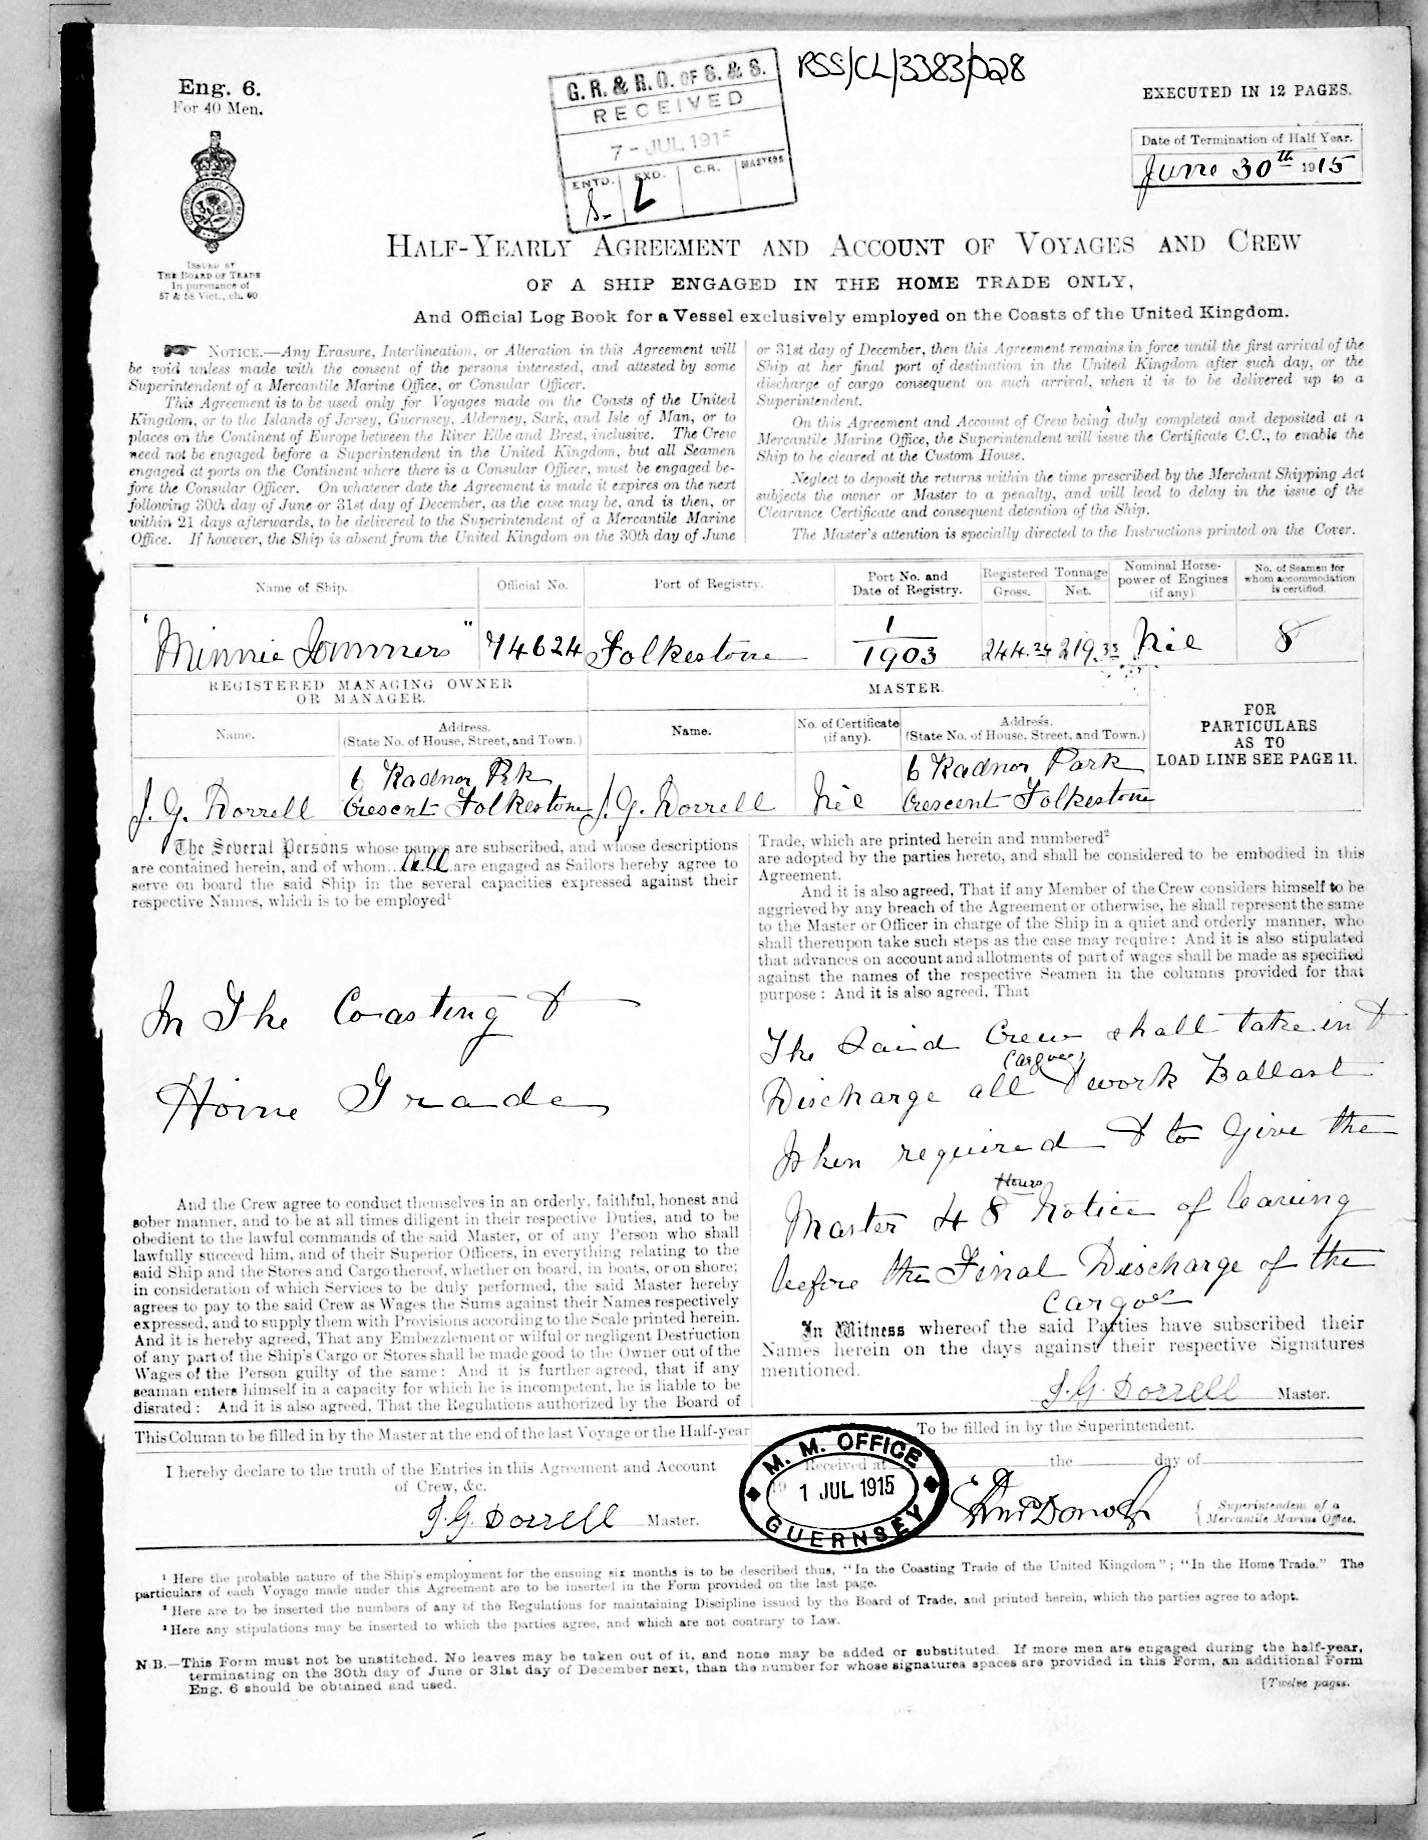 Eng. 6.
For 40 Men.
ISSUED BY
THE BOARD OF TRADE
In pursuance of
57 & 58 Vict., ch. 60
G. R. & R. O. OF S. & S.
RECEIVED
7 - JUL 1915
ENTD. EXD. C.R. MASTERS
RSS/CL/3383/028
EXECUTED IN 12 PAGES.
Date of Termination of Half Year.
June 30th 1915
HALF-YEARLY AGREEMENT AND ACCOUNT OF VOYAGES AND CREW
OF A SHIP ENGAGED IN THE HOME TRADE ONLY,
And Official Log Book for a Vessel exclusively employed on the Coasts of the United Kingdom.
NOTICE.—Any Erasure, Interlineation, or Alteration in this Agreement will
be void unless made with the consent of the persons interested, and attested by some
Superintendent of a Mercantile Marine Office, or Consular Officer.
This Agreement is to be used only for Voyages made on the Coasts of the United
Kingdom, or to the Islands of Jersey, Guernsey, Alderney, Sark, and Isle of Man, or to
places on the Continent of Europe between the River Elbe and Brest, inclusive. The Crew
need not be engaged before a Superintendent in the United Kingdom, but all Seamen
engaged at ports on the Continent where there is a Consular Officer, must be engaged be-
fore the Consular Officer. On whatever date the Agreement is made it expires on the next
following 30th day of June or 31st day of December, as the case may be, and is then, or
within 21 days afterwards, to be delivered to the Superintendent of a Mercantile Marine
Office. If however, the Ship is absent from the United Kingdom on the 30th day of June
or 31st day of December, then this Agreement remains in force until the first arrival of the
Ship at her final port of destination in the United Kingdom after such day, or the
discharge of cargo consequent on such arrival, when it is to be delivered up to a
Superintendent.
On this Agreement and Account of Crew being duly completed and deposited at a
Mercantile Marine Office, the Superintendent will issue the Certificate C.C., to enable the
Ship to be cleared at the Custom House.
Neglect to deposit the returns within the time prescribed by the Merchant Shipping Act
subjects the owner or Master to a penalty, and will lead to delay in the issue of the
Clearance Certificate and consequent detention of the Ship.
The Master's attention is specially directed to the Instructions printed on the Cover.
Name of Ship. Official No. Port of Registry. Port No. and Date of Registry. Registered Tonnage Gross. Net. Nominal Horse-power of Engines (if any) No. of Seamen for whom accommodation is certified.
"Minnie Sommers" 74624 Folkestone 1/1903 244.34 219.33 Nil 8
REGISTERED MANAGING OWNER
OR MANAGER.
MASTER.
Name. Address. (State No. of House, Street, and Town.) Name. No. of Certificate (if any). Address. (State No. of House, Street, and Town.)
J. G. Dorrell 6 Radnor Pk Crescent Folkestone J. G. Dorrell Nil 6 Radnor Park Crescent Folkestone
FOR
PARTICULARS
AS TO
LOAD LINE SEE PAGE 11.
The Several Persons whose names are subscribed, and whose descriptions
are contained herein, and of whom all are engaged as Sailors hereby agree to
serve on board the said Ship in the several capacities expressed against their
respective Names, which is to be employed¹
In The Coasting &
Home Trade
And the Crew agree to conduct themselves in an orderly, faithful, honest and
sober manner, and to be at all times diligent in their respective Duties, and to be
obedient to the lawful commands of the said Master, or of any Person who shall
lawfully succeed him, and of their Superior Officers, in everything relating to the
said Ship and the Stores and Cargo thereof, whether on board, in boats, or on shore;
in consideration of which Services to be duly performed, the said Master hereby
agrees to pay to the said Crew as Wages the Sums against their Names respectively
expressed, and to supply them with Provisions according to the Scale printed herein.
And it is hereby agreed, That any Embezzlement or wilful or negligent Destruction
of any part of the Ship's Cargo or Stores shall be made good to the Owner out of the
Wages of the Person guilty of the same: And it is further agreed, that if any
seaman enters himself in a capacity for which he is incompetent, he is liable to be
disrated: And it is also agreed, That the Regulations authorized by the Board of
Trade, which are printed herein and numbered²
are adopted by the parties hereto, and shall be considered to be embodied in this
Agreement.
And it is also agreed, That if any Member of the Crew considers himself to be
aggrieved by any breach of the Agreement or otherwise, he shall represent the same
to the Master or Officer in charge of the Ship in a quiet and orderly manner, who
shall thereupon take such steps as the case may require: And it is also stipulated
that advances on account and allotments of part of wages shall be made as specified
against the names of the respective Seamen in the columns provided for that
purpose: And it is also agreed, That
The Said Crew shall take in &
Discharge all Cargoes & work Ballast
When required & to Give the
Master 48 Hours Notice of leaving
before the Final Discharge of the
Cargoes
In Witness whereof the said Parties have subscribed their
Names herein on the days against their respective Signatures
mentioned.
J. G. Dorrell Master.
This Column to be filled in by the Master at the end of the last Voyage or the Half-year
I hereby declare to the truth of the Entries in this Agreement and Account
of Crew, &c.
J. G. Dorrell Master.
To be filled in by the Superintendent.
Received at the day of
19
M. M. OFFICE
1 JUL 1915
GUERNSEY
Superintendent of a
Mercantile Marine Office.
¹ Here the probable nature of the Ship's employment for the ensuing six months is to be described thus, "In the Coasting Trade of the United Kingdom"; "In the Home Trade." The
particulars of each Voyage made under this Agreement are to be inserted in the Form provided on the last page.
² Here are to be inserted the numbers of any of the Regulations for maintaining Discipline issued by the Board of Trade, and printed herein, which the parties agree to adopt.
³ Here any stipulations may be inserted to which the parties agree, and which are not contrary to Law.
N.B.—This Form must not be unstitched. No leaves may be taken out of it, and none may be added or substituted. If more men are engaged during the half-year,
terminating on the 30th day of June or 31st day of December next, than the number for whose signatures spaces are provided in this Form, an additional Form
Eng. 6 should be obtained and used.
[Twelve pages.